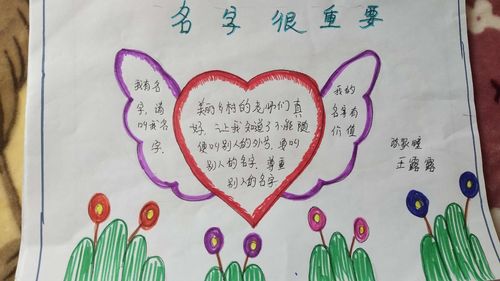 名字很重要
我有名
字,请
叫我名
字.
美丽乡村的老师们真
好,让我知道了不能随
便叫别人的外号,要叫
别人的名字,尊重
别人的名字
我的
名字有
价值
王露露